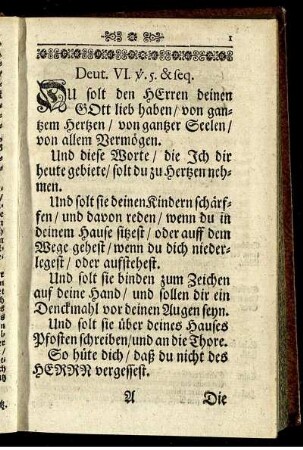 1
Deut. VI. ꝟ. 5. & seq.
DU solt den HErren deinen
GOtt lieb haben / von gan-
tzem Hertzen / von gantzer Seelen /
von allem Vermögen.
Und diese Worte / die Ich dir
heute gebiete / solt du zu Hertzen neh-
men.
Und solt sie deinen Kindern schärf-
fen / und davon reden / wenn du in
deinem Hause sitzest / oder auff dem
Wege gehest / wenn du dich nieder-
legest / oder aufstehest.
Und solt sie binden zum Zeichen
auf deine Hand / und sollen dir ein
Denckmahl vor deinen Augen seyn.
Und solt sie über deines Hauses
Pfosten schreiben / und an die Thore.
So hüte dich / daß du nicht des
HERRN vergessest.
A Die